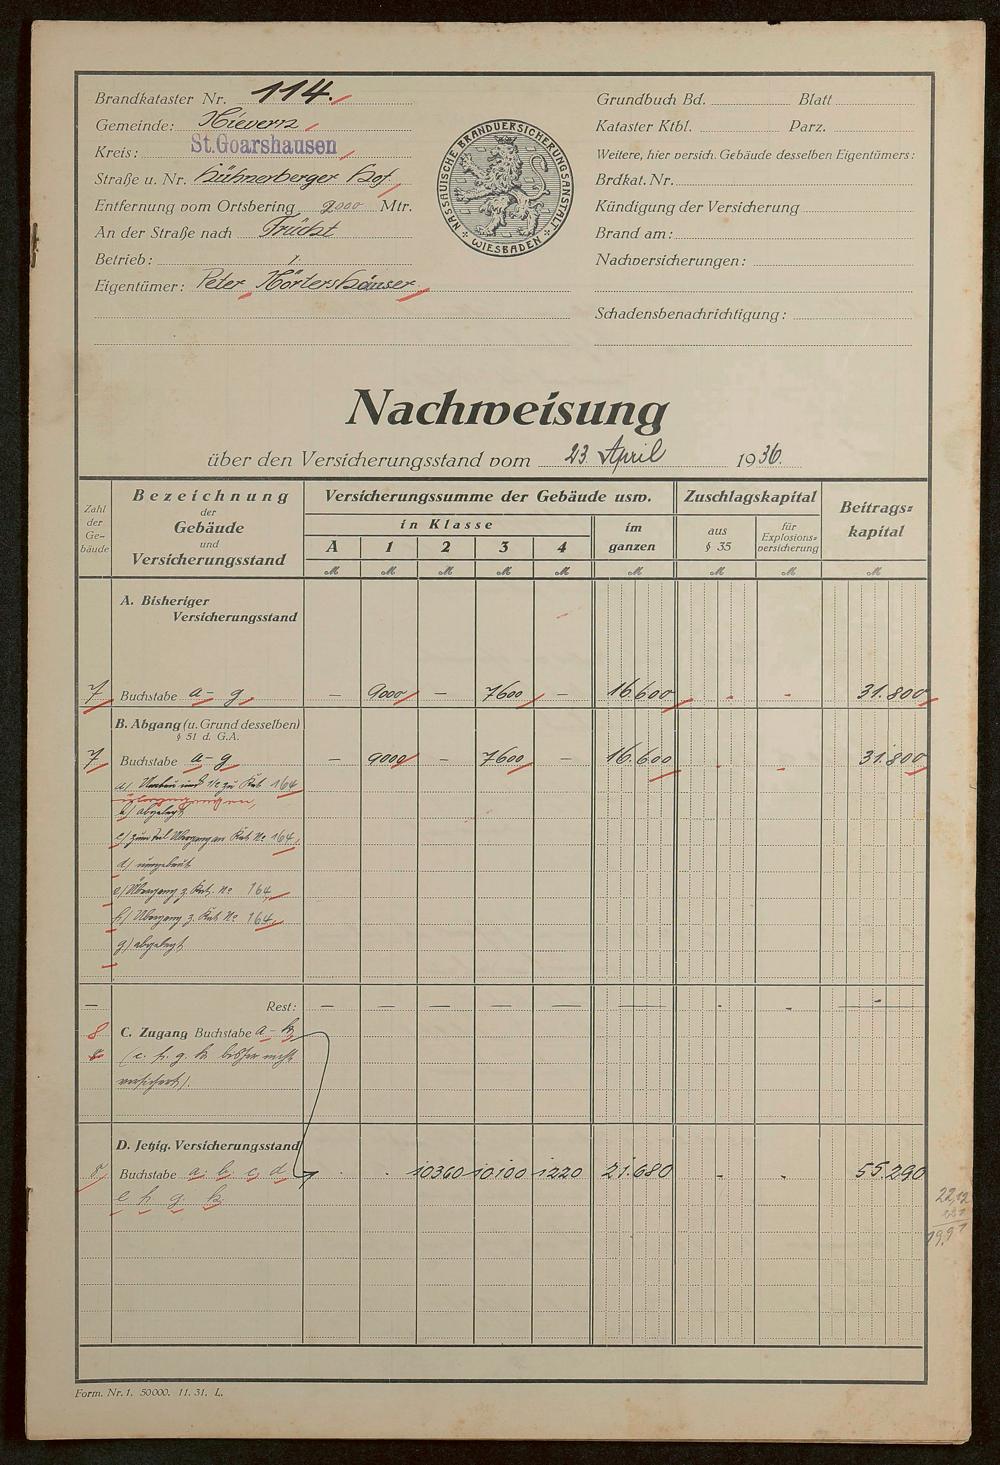 Brandkataster Nr. 114.
Gemeinde: Nievern
Kreis: St. Goarshausen
Straße u. Nr. Hühnerberger Hof
Entfernung vom Ortsbering 2000 Mtr.
An der Straße nach Frücht
Betrieb:
Eigentümer: Peter Hörtershäuser
NASSAUISCHE BRANDVERSICHERUNGSANSTALT
* WIESBADEN *
Grundbuch Bd. Blatt
Kataster Ktbl. Parz.
Weitere, hier versich. Gebäude desselben Eigentümers:
Brdkat. Nr.
Kündigung der Versicherung
Brand am:
Nachversicherungen:
Schadensbenachrichtigung:
Nachweisung
über den Versicherungsstand vom 23. April 1936.
Zahl der Ge-bäude
Bezeichnung
der
Gebäude
und
Versicherungsstand
Versicherungssumme der Gebäude usw.
in Klasse
A 1 2 3 4
im ganzen
Zuschlagskapital
aus § 35
für Explosions-versicherung
Beitrags-kapital
M M M M M M M M M
A. Bisheriger
Versicherungsstand
7 Buchstabe a - g, - 9000 - 7600 - 16.600 - - 31.800
B. Abgang (u. Grund desselben)
§ 51 d. G.A.
7 Buchstabe a - g - 9000 - 7600 - 16.600 - - 31.800
a) Umbau und 1/2 zu Kat. 164
übergegangen,
b) abgelegt
c) zum Teil Übergang an Kat. No 164,
d) umgebaut
e) Übergang z. Kat. No 164,
f) Übergang z. Kat. No 164,
g) abgelegt
- Rest: - - - - - - - - -
8 C. Zugang Buchstabe a - h
(e. f. g. h. bisher nicht
versichert).
D. Jetzig. Versicherungsstand
8 Buchstabe a, b, c, d . . 10360 10100 1220 21.680 - - 55.290
e f. g. h.
22,12
19,91
Form. Nr. 1. 50000. 11. 31. L.